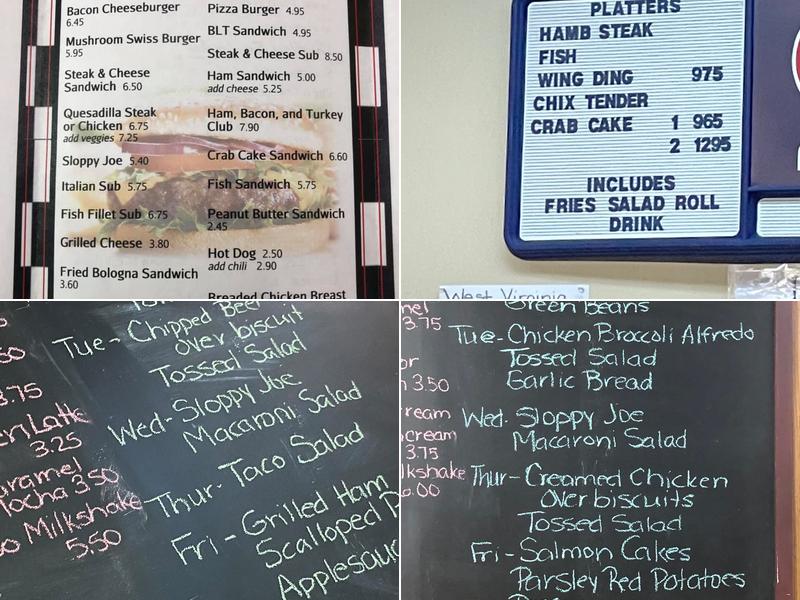 Bacon Cheeseburger
6.45
Mushroom Swiss Burger
5.95
Steak & Cheese
Sandwich 6.50
Quesadilla Steak
or Chicken 6.75
add veggies 7.25
Sloppy Joe 5.40
Italian Sub 5.75
Fish Fillet Sub 6.75
Grilled Cheese 3.80
Fried Bologna Sandwich
3.60
Pizza Burger 4.95
BLT Sandwich 4.95
Steak & Cheese Sub 8.50
Ham Sandwich 5.00
add cheese 5.25
Ham, Bacon, and Turkey
Club 7.90
Crab Cake Sandwich 6.60
Fish Sandwich 5.75
Peanut Butter Sandwich
2.45
Hot Dog 2.50
add chili 2.90
Breaded Chicken Breast
PLATTERS
HAMB STEAK
FISH
WING DING 975
CHIX TENDER
CRAB CAKE 1 965
2 1295
INCLUDES
FRIES SALAD ROLL
DRINK
West Virginia
Tue- Chipped Beef
over biscuit
Tossed Salad
Wed- Sloppy Joe
Macaroni Salad
Thur- Taco Salad
Fri- Grilled Ham
Scalloped
3.25
3.50
Milkshake
5.50
Green Beans
Tue- Chicken Broccoli Alfredo
Tossed Salad
Garlic Bread
Wed- Sloppy Joe
Macaroni Salad
Thur- Creamed Chicken
over biscuits
Tossed Salad
Fri- Salmon Cakes
Parsley Red Potatoes
3.75
3.50
3.75